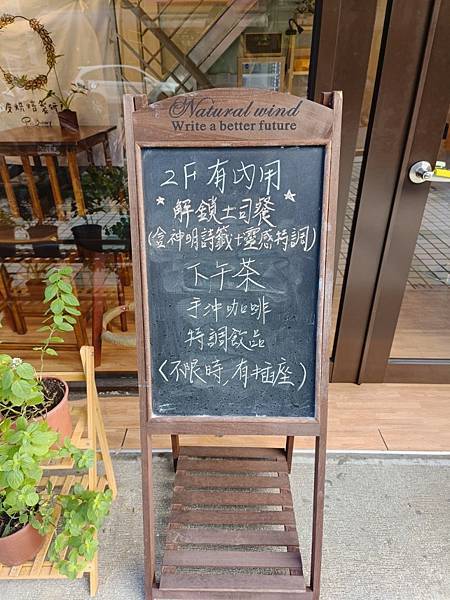 Natural wind
Write a better future
2F 有內用
解鎖土司餐
(含神明詩籤+靈感特調)
下午茶
手沖咖啡
特調飲品
(不限時,有插座)